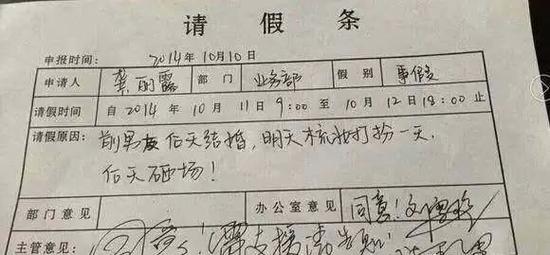 请假条
申报时间: 2014年10月10日
申请人 龚丽露 部门 业务部 假别 事假
请假时间 自2014年10月11日9:00至10月12日18:00止
请假原因: 前男友后天结婚,明天梳妆打扮一天,
后天砸场!
部门意见 办公室意见 同意!
主管意见: